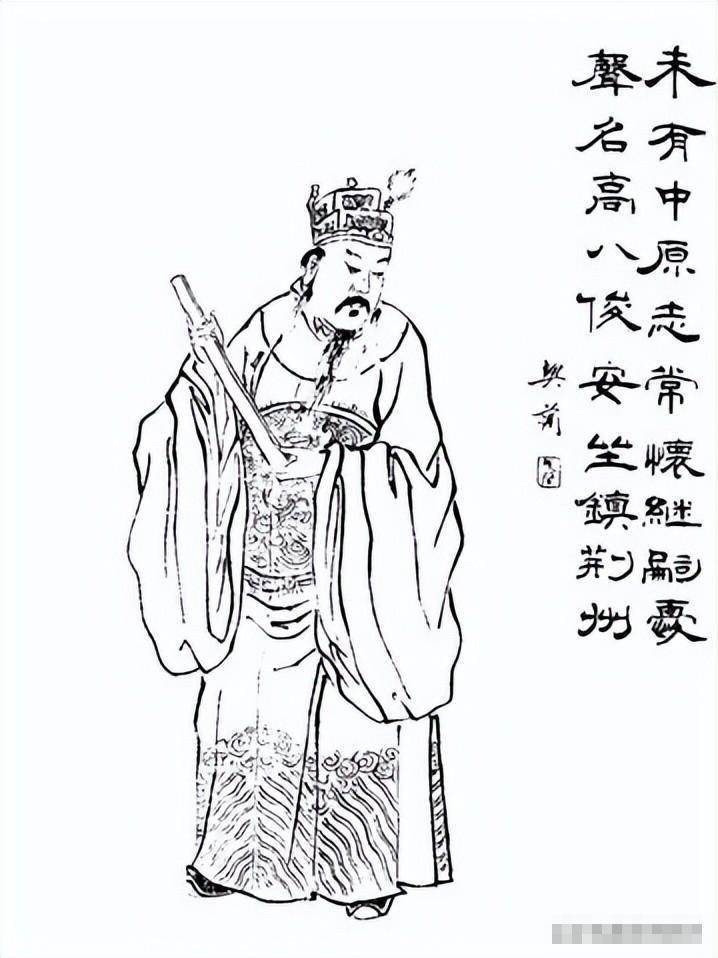 未有中原志常懷継嗣憂
聲名高八俊安坐鎮荊州